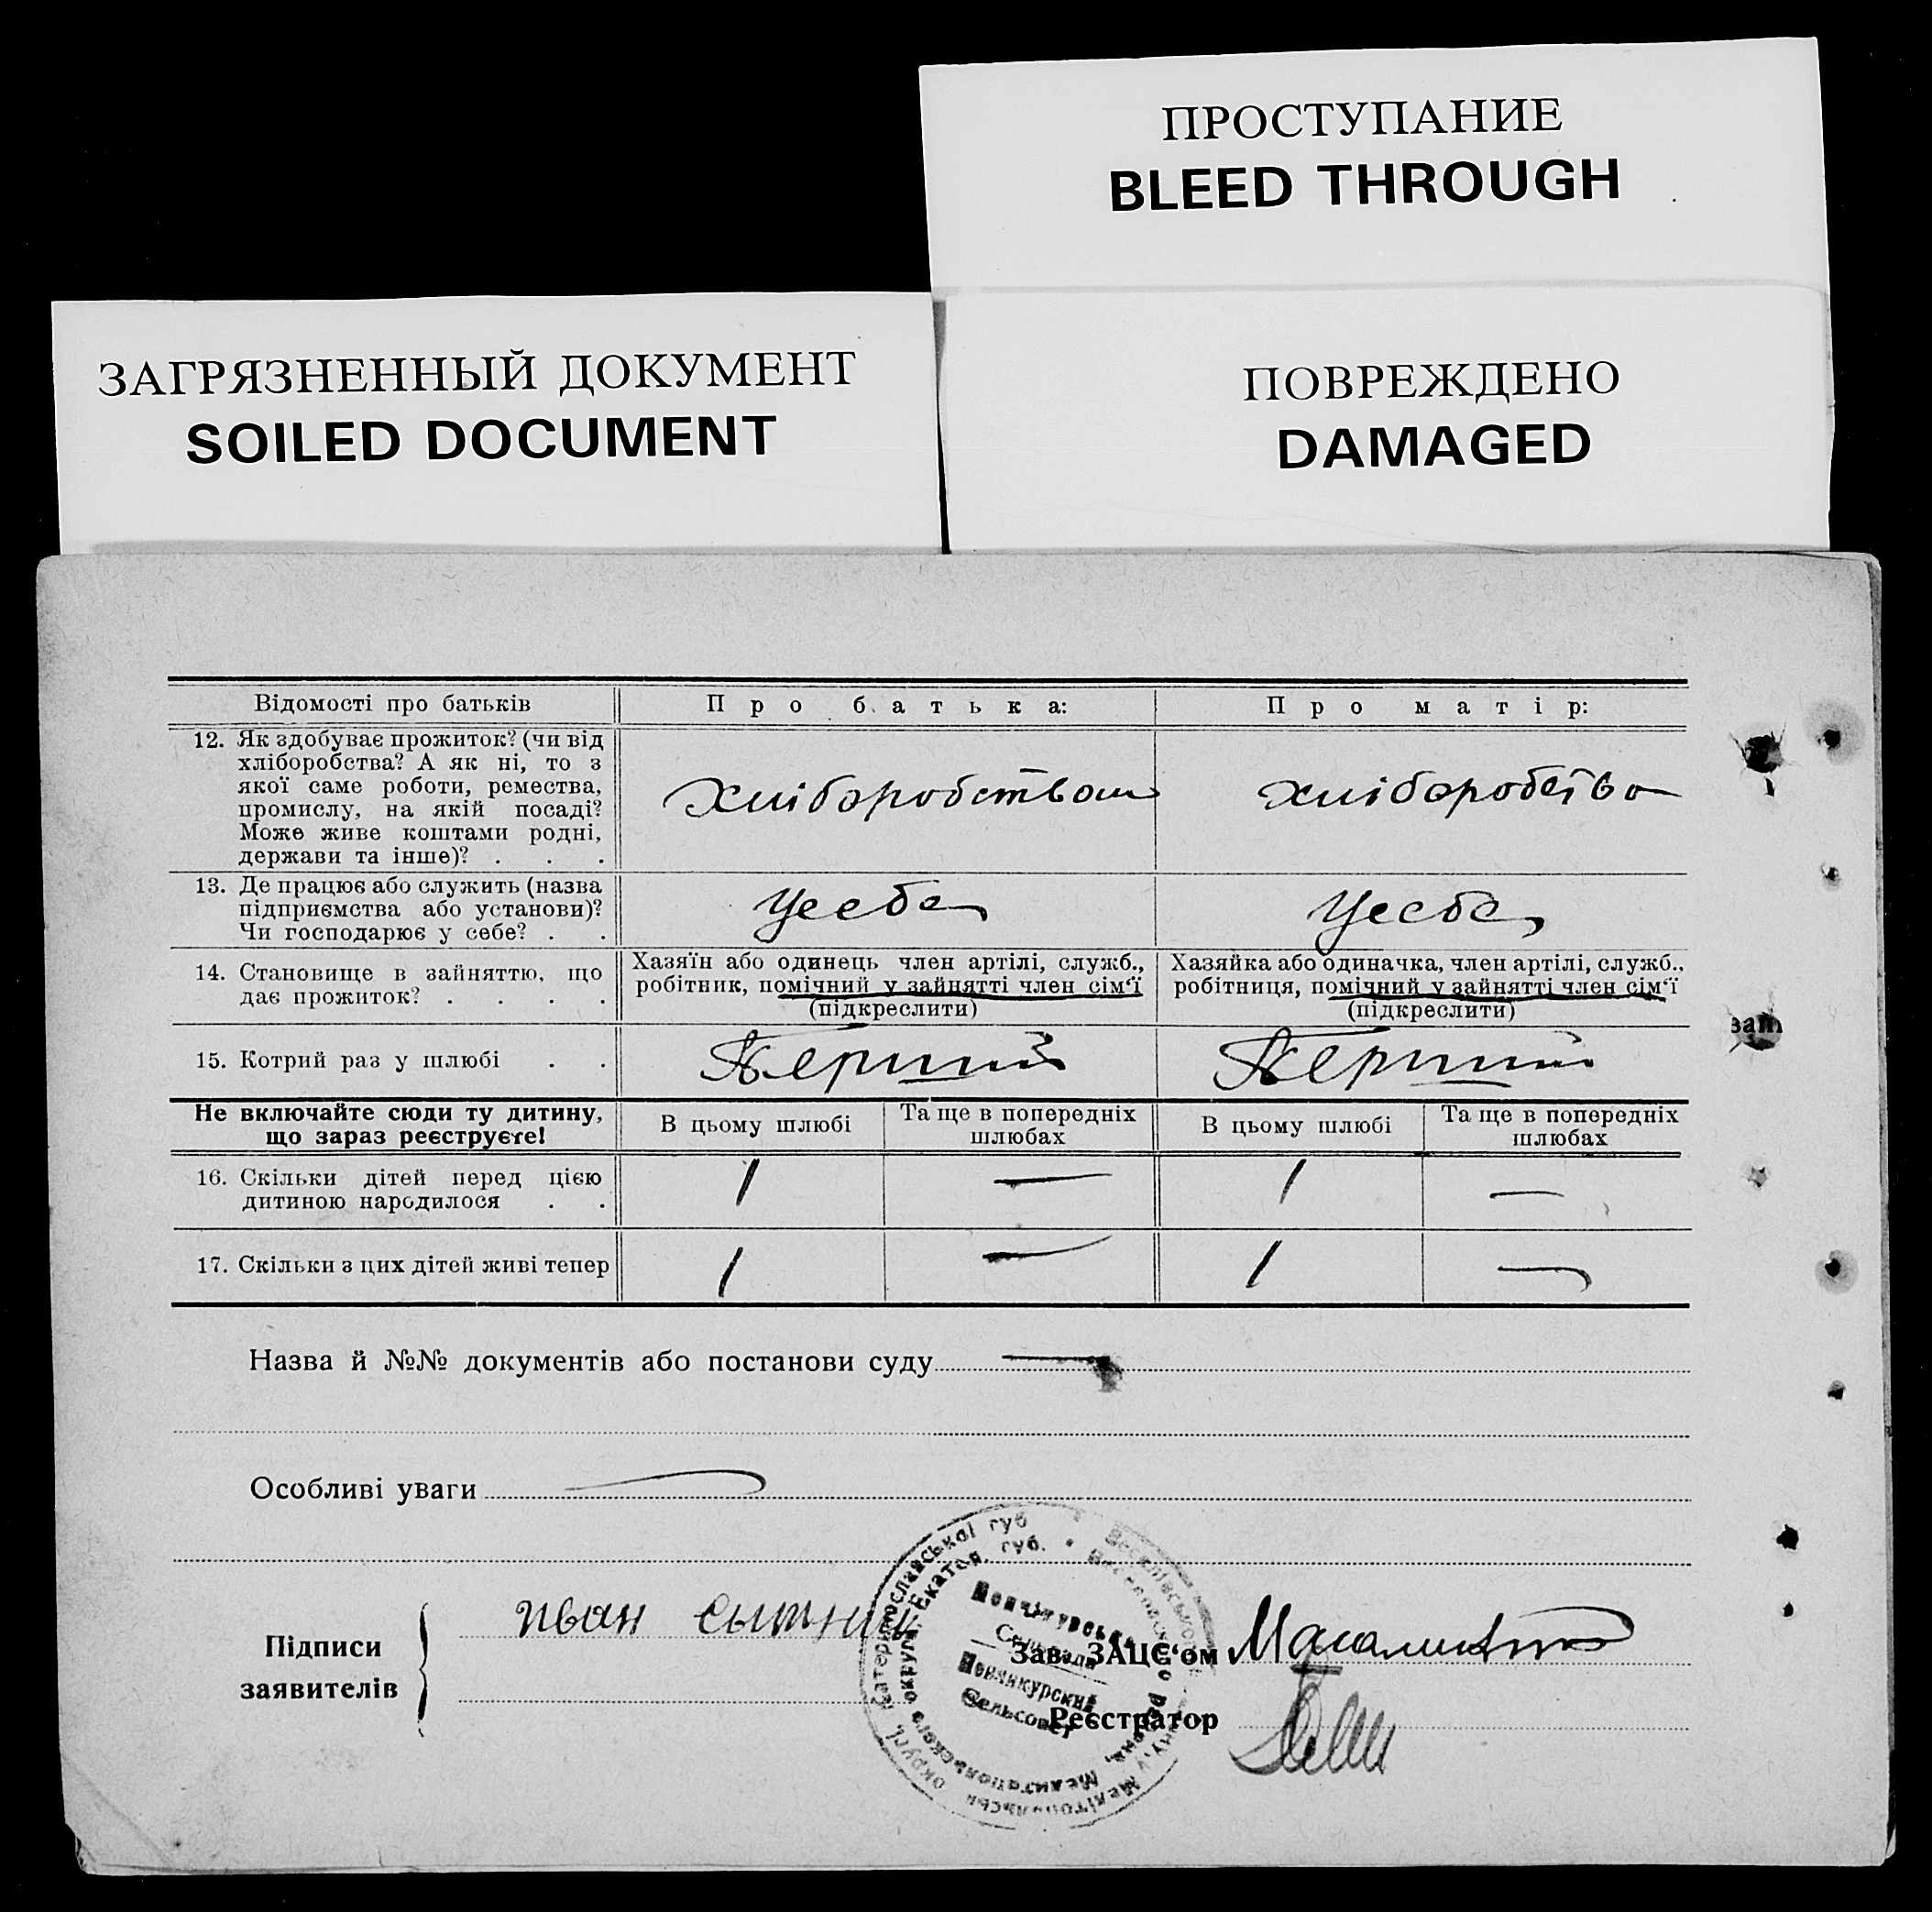 ПРОСТУПАНИЕ
BLEED THROUGH
ЗАГРЯЗНЕННЫЙ ДОКУМЕНТ
SOILED DOCUMENT
ПОВРЕЖДЕНО
DAMAGED
Відомості про батьків
Про батька:
Про матір:
12. Як здобуває прожиток? (чи від
хліборобства? А як ні, то з
якої саме роботи, ремества,
промислу, на якій посаді?
Може живе коштами родні,
держави та інше)? . . .
Хліборобством
хліборобство
13. Де працює або служить (назва
підприємства або установи)?
Чи господарює у себе? . .
У себе
У себе
14. Становище в зайняттю, що
дає прожиток? . . . .
Хазяїн або одинець член артілі, служб.,
робітник, помічний у зайнятті член сім‘ї
(підкреслити)
Хазяйка або одиначка, член артілі, служб.,
робітниця, помічний у зайнятті член сім‘ї
(підкреслити)
15. Котрий раз у шлюбі . .
Перший
Перший
Не включайте сюди ту дитину,
що зараз реєструєте!
В цьому шлюбі
Та ще в попередніх
шлюбах
В цьому шлюбі
Та ще в попередніх
шлюбах
16. Скільки дітей перед цією
дитиною народилося . .
1 — 1 —
17. Скільки з цих дітей живі тепер
1 — 1 —
Назва й №№ документів або постанови суду —
Особливі уваги —
Підписи
заявителів
Иван Сытник
Зав. ЗАЦС‘ом
Реєстратор
Сельсовет